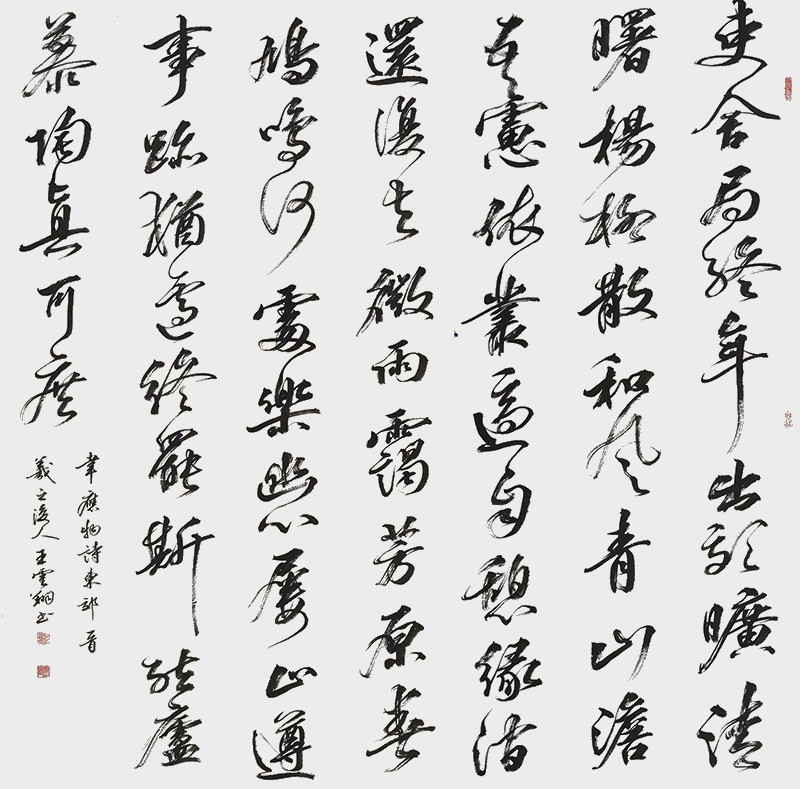 吏舍局終年出郊曠清
曙楊柳散和風青山澹
吾慮依叢適自憩緣澗
還復去微雨靄芳原春
鳩鳴何處樂幽心屢止遵
事跡猶遽終罷斯結廬
慕陶真可庶
韋應物詩東郊晉
羲之後人王雲翔書